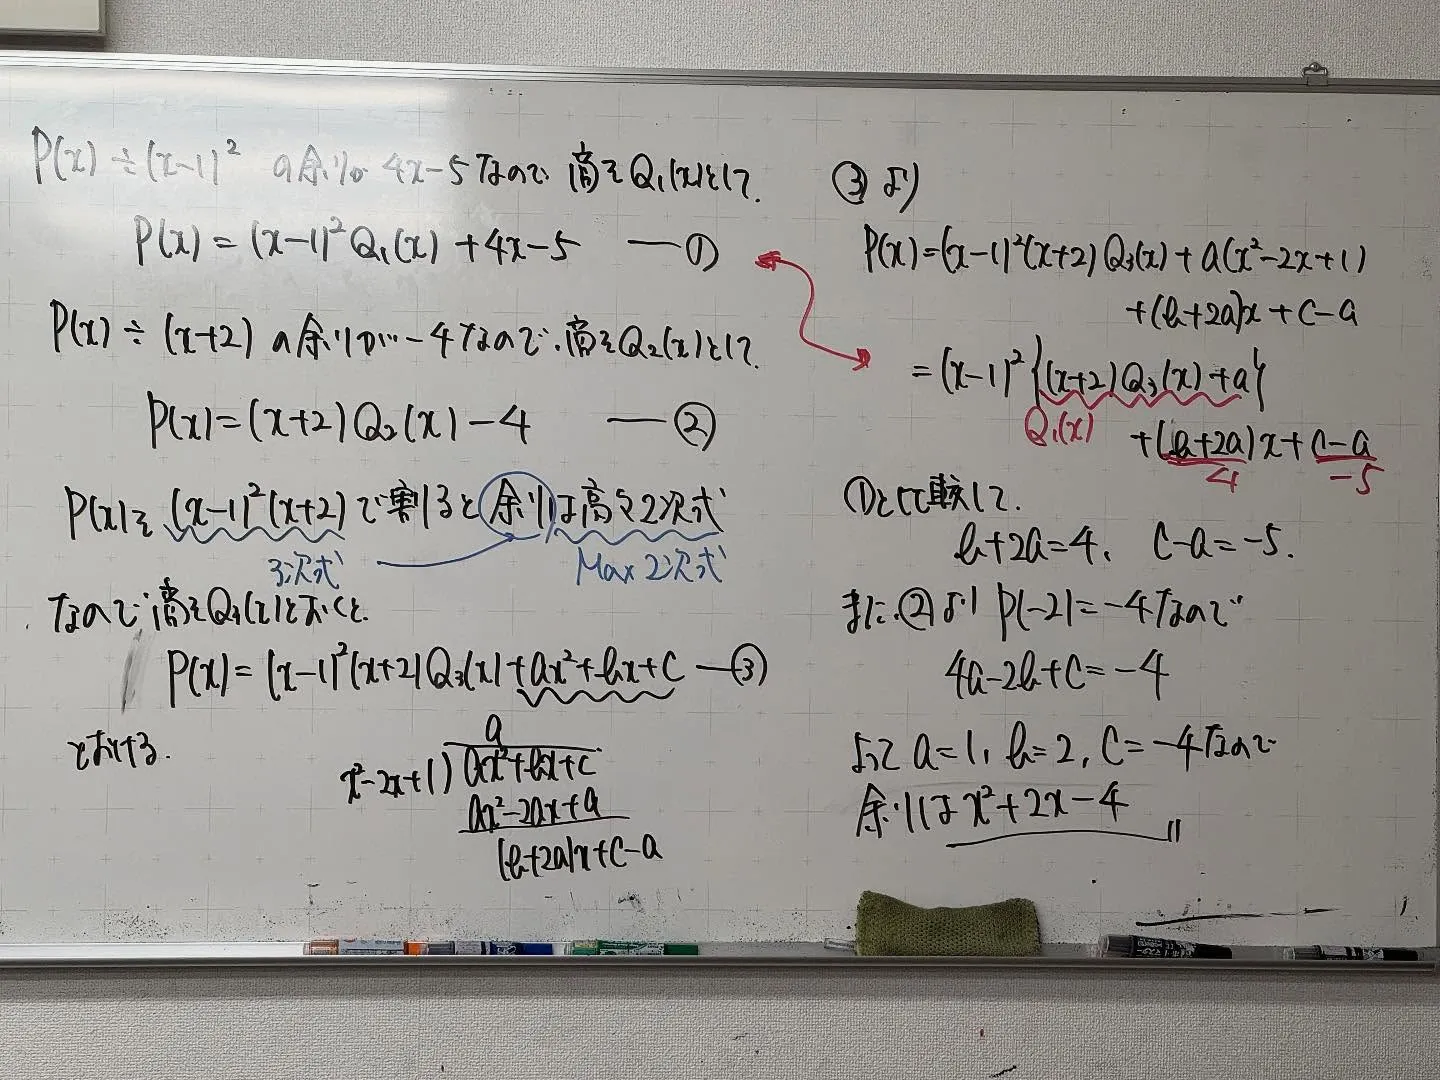 P(x)÷(x-1)² の余りが 4x-5 なので 商を Q₁(x) として、
P(x) = (x-1)² Q₁(x) + 4x-5 ― ①
P(x) ÷ (x+2) の余りが -4 なので、商を Q₂(x) として
P(x) = (x+2) Q₂(x) - 4 ― ②
P(x)を (x-1)²(x+2) で割ると余りは高々2次式
3次式 Max 2次式
なので 商を Q₃(x) とおくと
P(x) = (x-1)²(x+2) Q₃(x) + ax² + bx + c ― ③
とおける.
a
x²-2x+1)ax²+bx+c
ax²-2ax+a
(b+2a)x+c-a
③より
P(x) = (x-1)²(x+2) Q₃(x) + a(x²-2x+1)
+(b+2a)x + c-a
= (x-1)² {(x+2) Q₃(x) + a}
Q₁(x)
+(b+2a)x + c-a
4 -5
①と比較して.
b+2a=4、 c-a=-5.
また、②より P(-2)=-4 なので
4a-2b+c=-4
よって a=1, b=2, c=-4 なので
余りは x²+2x-4